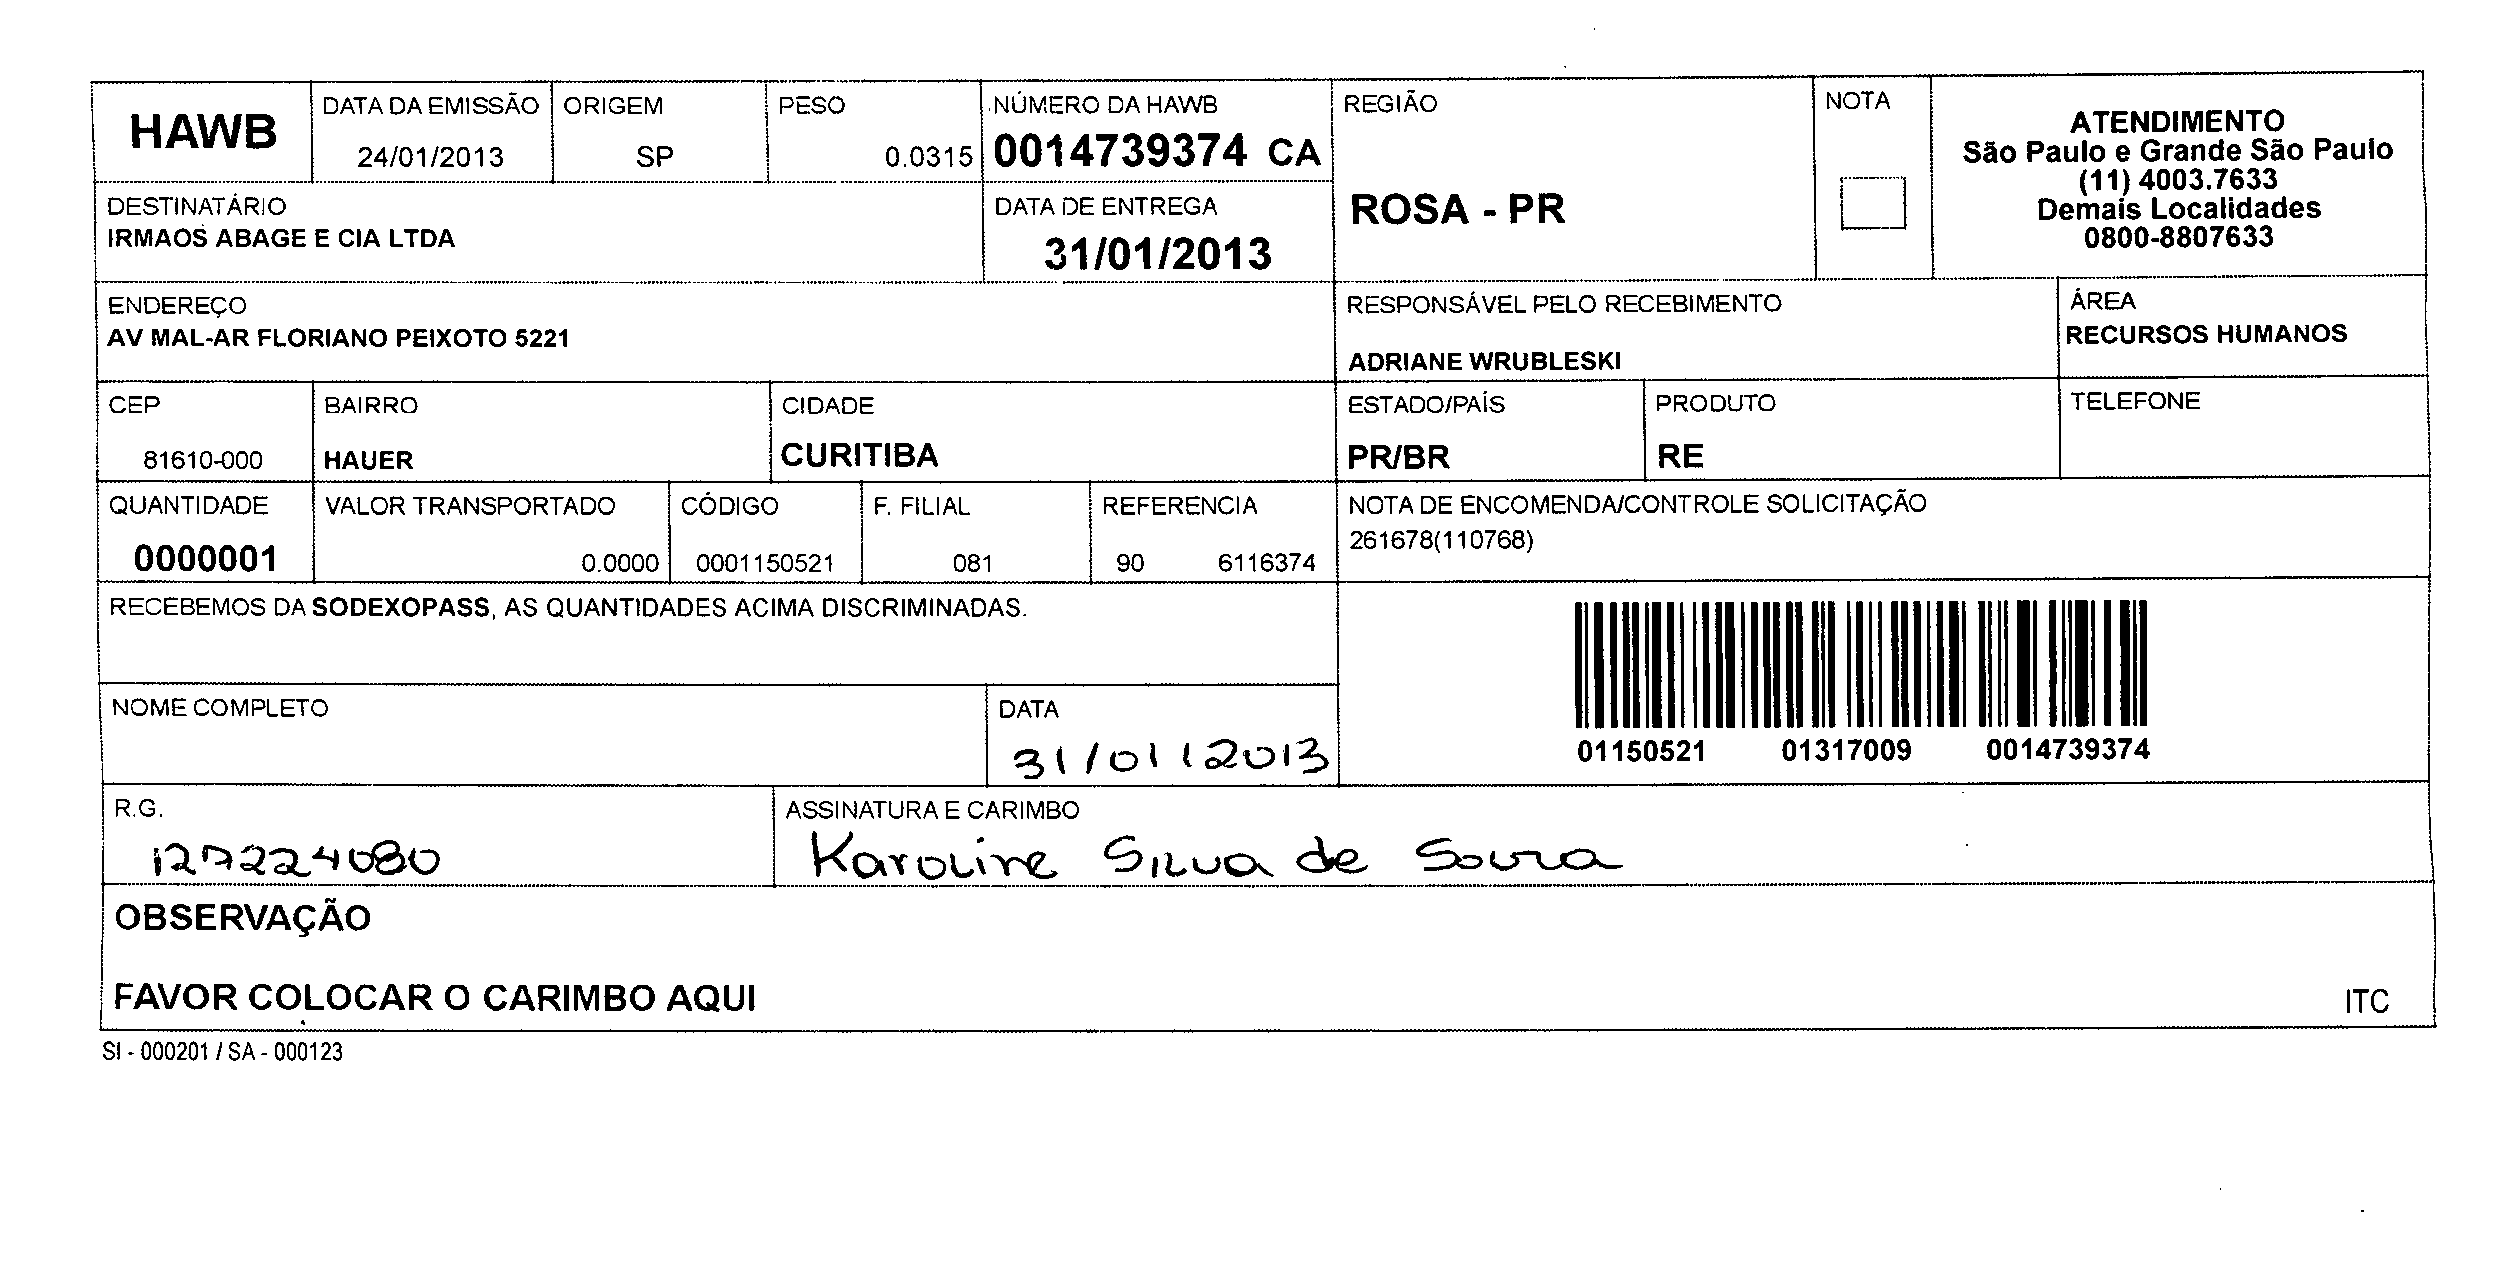 HAWB
DATA DA EMISSÃO
24/01/2013
ORIGEM
SP
PESO
0.0315
NÚMERO DA HAWB
0014739374 CA
REGIÃO
ROSA - PR
NOTA
ATENDIMENTO
São Paulo e Grande São Paulo
(11) 4003.7633
Demais Localidades
0800-8807633
DESTINATÁRIO
IRMAOS ABAGE E CIA LTDA
DATA DE ENTREGA
31/01/2013
ENDEREÇO
AV MAL-AR FLORIANO PEIXOTO 5221
RESPONSÁVEL PELO RECEBIMENTO
ADRIANE WRUBLESKI
ÁREA
RECURSOS HUMANOS
CEP
81610-000
BAIRRO
HAUER
CIDADE
CURITIBA
ESTADO/PAÍS
PR/BR
PRODUTO
RE
TELEFONE
QUANTIDADE
0000001
VALOR TRANSPORTADO
0.0000
CÓDIGO
0001150521
F. FILIAL
081
REFERENCIA
90 6116374
NOTA DE ENCOMENDA/CONTROLE SOLICITAÇÃO
261678(110768)
RECEBEMOS DA SODEXOPASS, AS QUANTIDADES ACIMA DISCRIMINADAS.
01150521 01317009 0014739374
NOME COMPLETO
DATA
31/01/2013
R.G.
127224080
ASSINATURA E CARIMBO
Karoline Silva de Souza
OBSERVAÇÃO
FAVOR COLOCAR O CARIMBO AQUI
ITC
SI - 000201 / SA - 000123